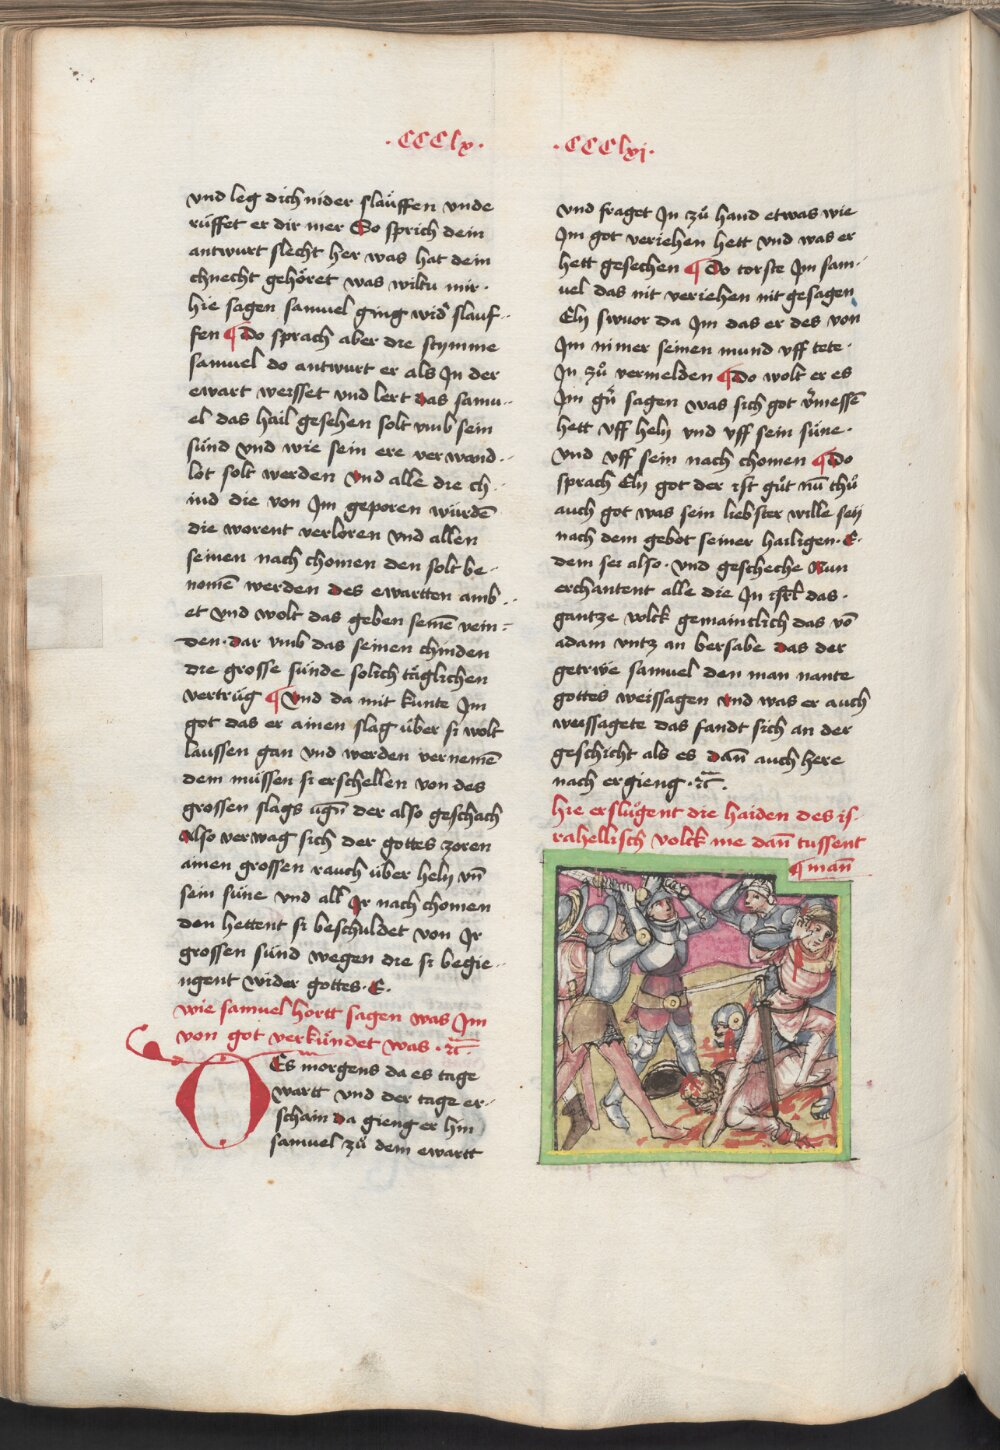 ·CCClx·
und leg dich nider slaüffen unde
rüffet er dir mer So sprich dein
antwurt slecht her was hat dein
chnecht gehöret was wiltu mir·
hie sagen samuel ging wid' slauf-
fen ¶Do sprach aber die stymme
samuel do antwurt er als Jn der
ewart weisset und lert das samu-
el das hail gesehen solt umb sein
sünd und wie sein ere verwand-
lot solt werden Und alle die ch-
ind die von Jm geporen würdē
die worent verloren und allen
seinen nach chomen den solt be-
nomē werden des ewartten amb-
et und wolt das geben seinē vein-
den· dar umb das seinen chinden
die grosse sünde solich täglichen
vertrüg ¶Und da mit kunte Jm
got das er ainen slag über si wolt
laussen gan und werden vernemē
dem müssen si erschellen von des
grossen slags ugn̄ der also geschach
Also verwag sich der gottes zoren
ainen grossen rauch über hely un̄
sein süne und all Jr nach chomen
den hettent si beschuldet von Jr
grossen sünd wegen die si begie-
ngent wider gottes· E·
wie samuel hortt sagen was Jm
von got verkündet was ·rc̄·
DEs morgens da es tage
wartt und der tage er-
schain da gieng er hin
samuel zů dem ewartt
·CCClxj·
und fraget Jn zů hand etwas wie
Jm got veriehen hett und was er
hett gesechen ¶Do torste Jm sam-
uel das nit veriehen nit gesagen
Ely swuor da Jm das er des von
Jm nimer seinen mund uff tete·
Jn zů vermelden ¶Do wolt er es
Jm gn̄ sagen was sich got v'messē
hett uff hely und uff sein süne·
und uff sein nach chomen ¶Do
sprach Ely got der ist gůt nū thů
auch got was sein liebster wille seÿ
nach dem gebot seiner hailigen· E·
dem sei also· und gescheche Nun
erchantent alle die Jn isrl̄ das·
gantze volck gemaintlich das vō
adam untz an bersabe das der
getrwe samuel den man nante
gottes weissagen und was er auch
weissagete das fandt sich an der
geschicht als es dan̄ auch here
nach ergieng ·rc̄·
hie erslůgent die haiden des is-
rahellisch volck me dan̄ tussent
¶man̄